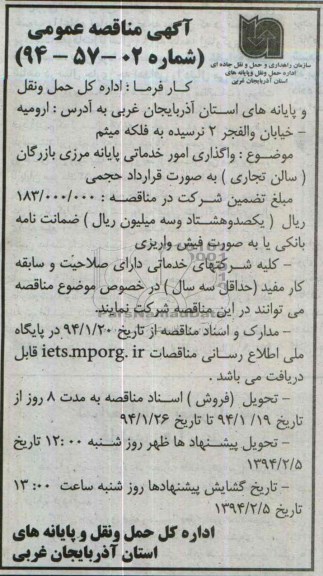 آگهی مناقصه عمومی
(شماره ۰۲ – ۵۷ – ۹۴)
سازمان راهداری و حمل و نقل جاده ای
اداره کل حمل ونقل وپایانه های
استان آذربایجان غربی
کار فرما : اداره کل حمل ونقل
و پایانه های استان آذربایجان غربی به آدرس : ارومیه
– خیابان والفجر ۲ نرسیده به فلکه میثم
موضوع : واگذاری امور خدماتی پایانه مرزی بازرگان
( سالن تجاری ) به صورت قرارداد حجمی
مبلغ تضمین شرکت در مناقصه : ۱۸۳/۰۰۰/۰۰۰
ریال ( یکصدوهشتاد وسه میلیون ریال ) ضمانت نامه
بانکی یا به صورت فیش واریزی
– کلیه شرکتهای خدماتی دارای صلاحیت و سابقه
کار مفید (حداقل سه سال ) در خصوص موضوع مناقصه
می توانند در این مناقصه شرکت نمایند.
– مدارک و اسناد مناقصه از تاریخ ۹۴/۱/۲۰ در پایگاه
ملی اطلاع رسانی مناقصات iets.mporg.ir قابل
دریافت می باشد .
– تحویل (فروش ) اسناد مناقصه به مدت ۸ روز از
تاریخ ۱۹/ ۹۴/۱ تا تاریخ ۹۴/۱/۲۶
– تحویل پیشنهاد ها ظهر روز شنبه ۱۲:۰۰ تاریخ
۱۳۹۴/۲/۵
– تاریخ گشایش پیشنهادها روز شنبه ساعت ۱۳:۰۰
تاریخ ۱۳۹۴/۲/۵
اداره کل حمل ونقل و پایانه های
استان آذربایجان غربی